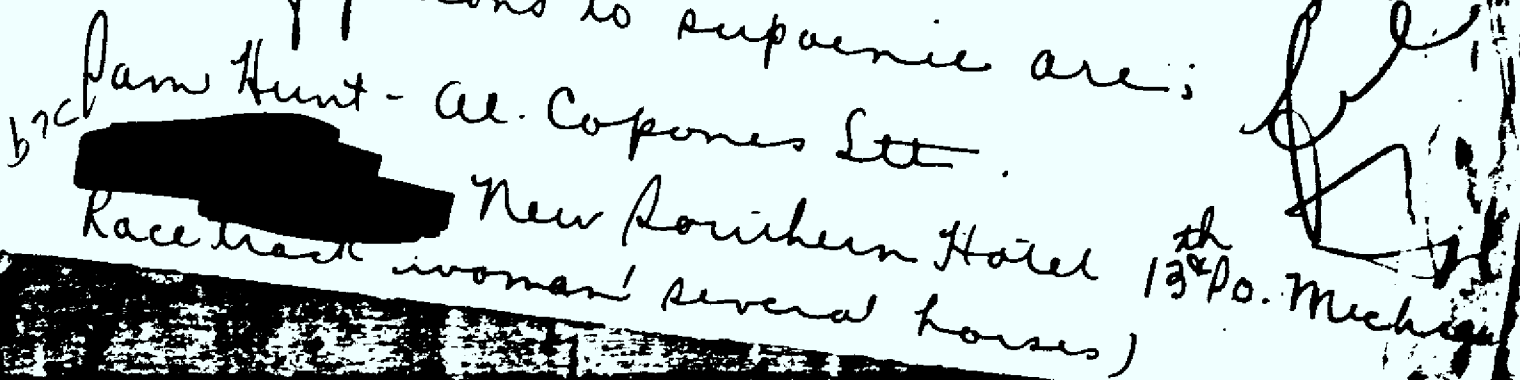 to supoenie are;
Sam Hunt - Al. Capones Ltt.
b7C
New Southern Hotel 13th & So. Michigan
Race track woman several horses)